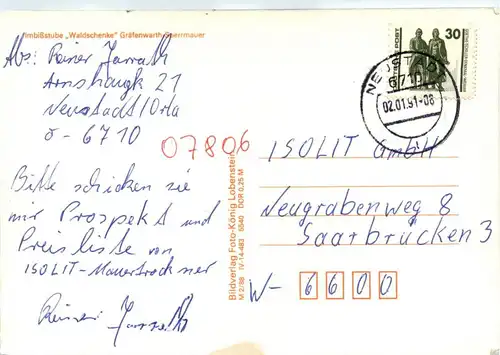 Imbißstube „Waldschenke" Gräfenwarth Sperrmauer
Abs: Reiner
21
Neustadt/Orla
O-6710
07806
Bitte schicken sie
mir Prospekt und
Preisliste von
ISOLIT-Mauertrockner
Bildverlag Foto-König Lobenstein
M 2/88 IV-14-483 6840 DDR 0,25 M
30
NEUSTADT
6710
02.01.91-08
ISOLIT GmbH
Neugrabenweg 8
Saarbrücken 3
W- 6600